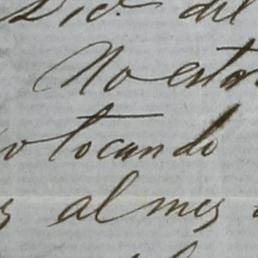 Dic.e del
No esto
o tocando
s al mes